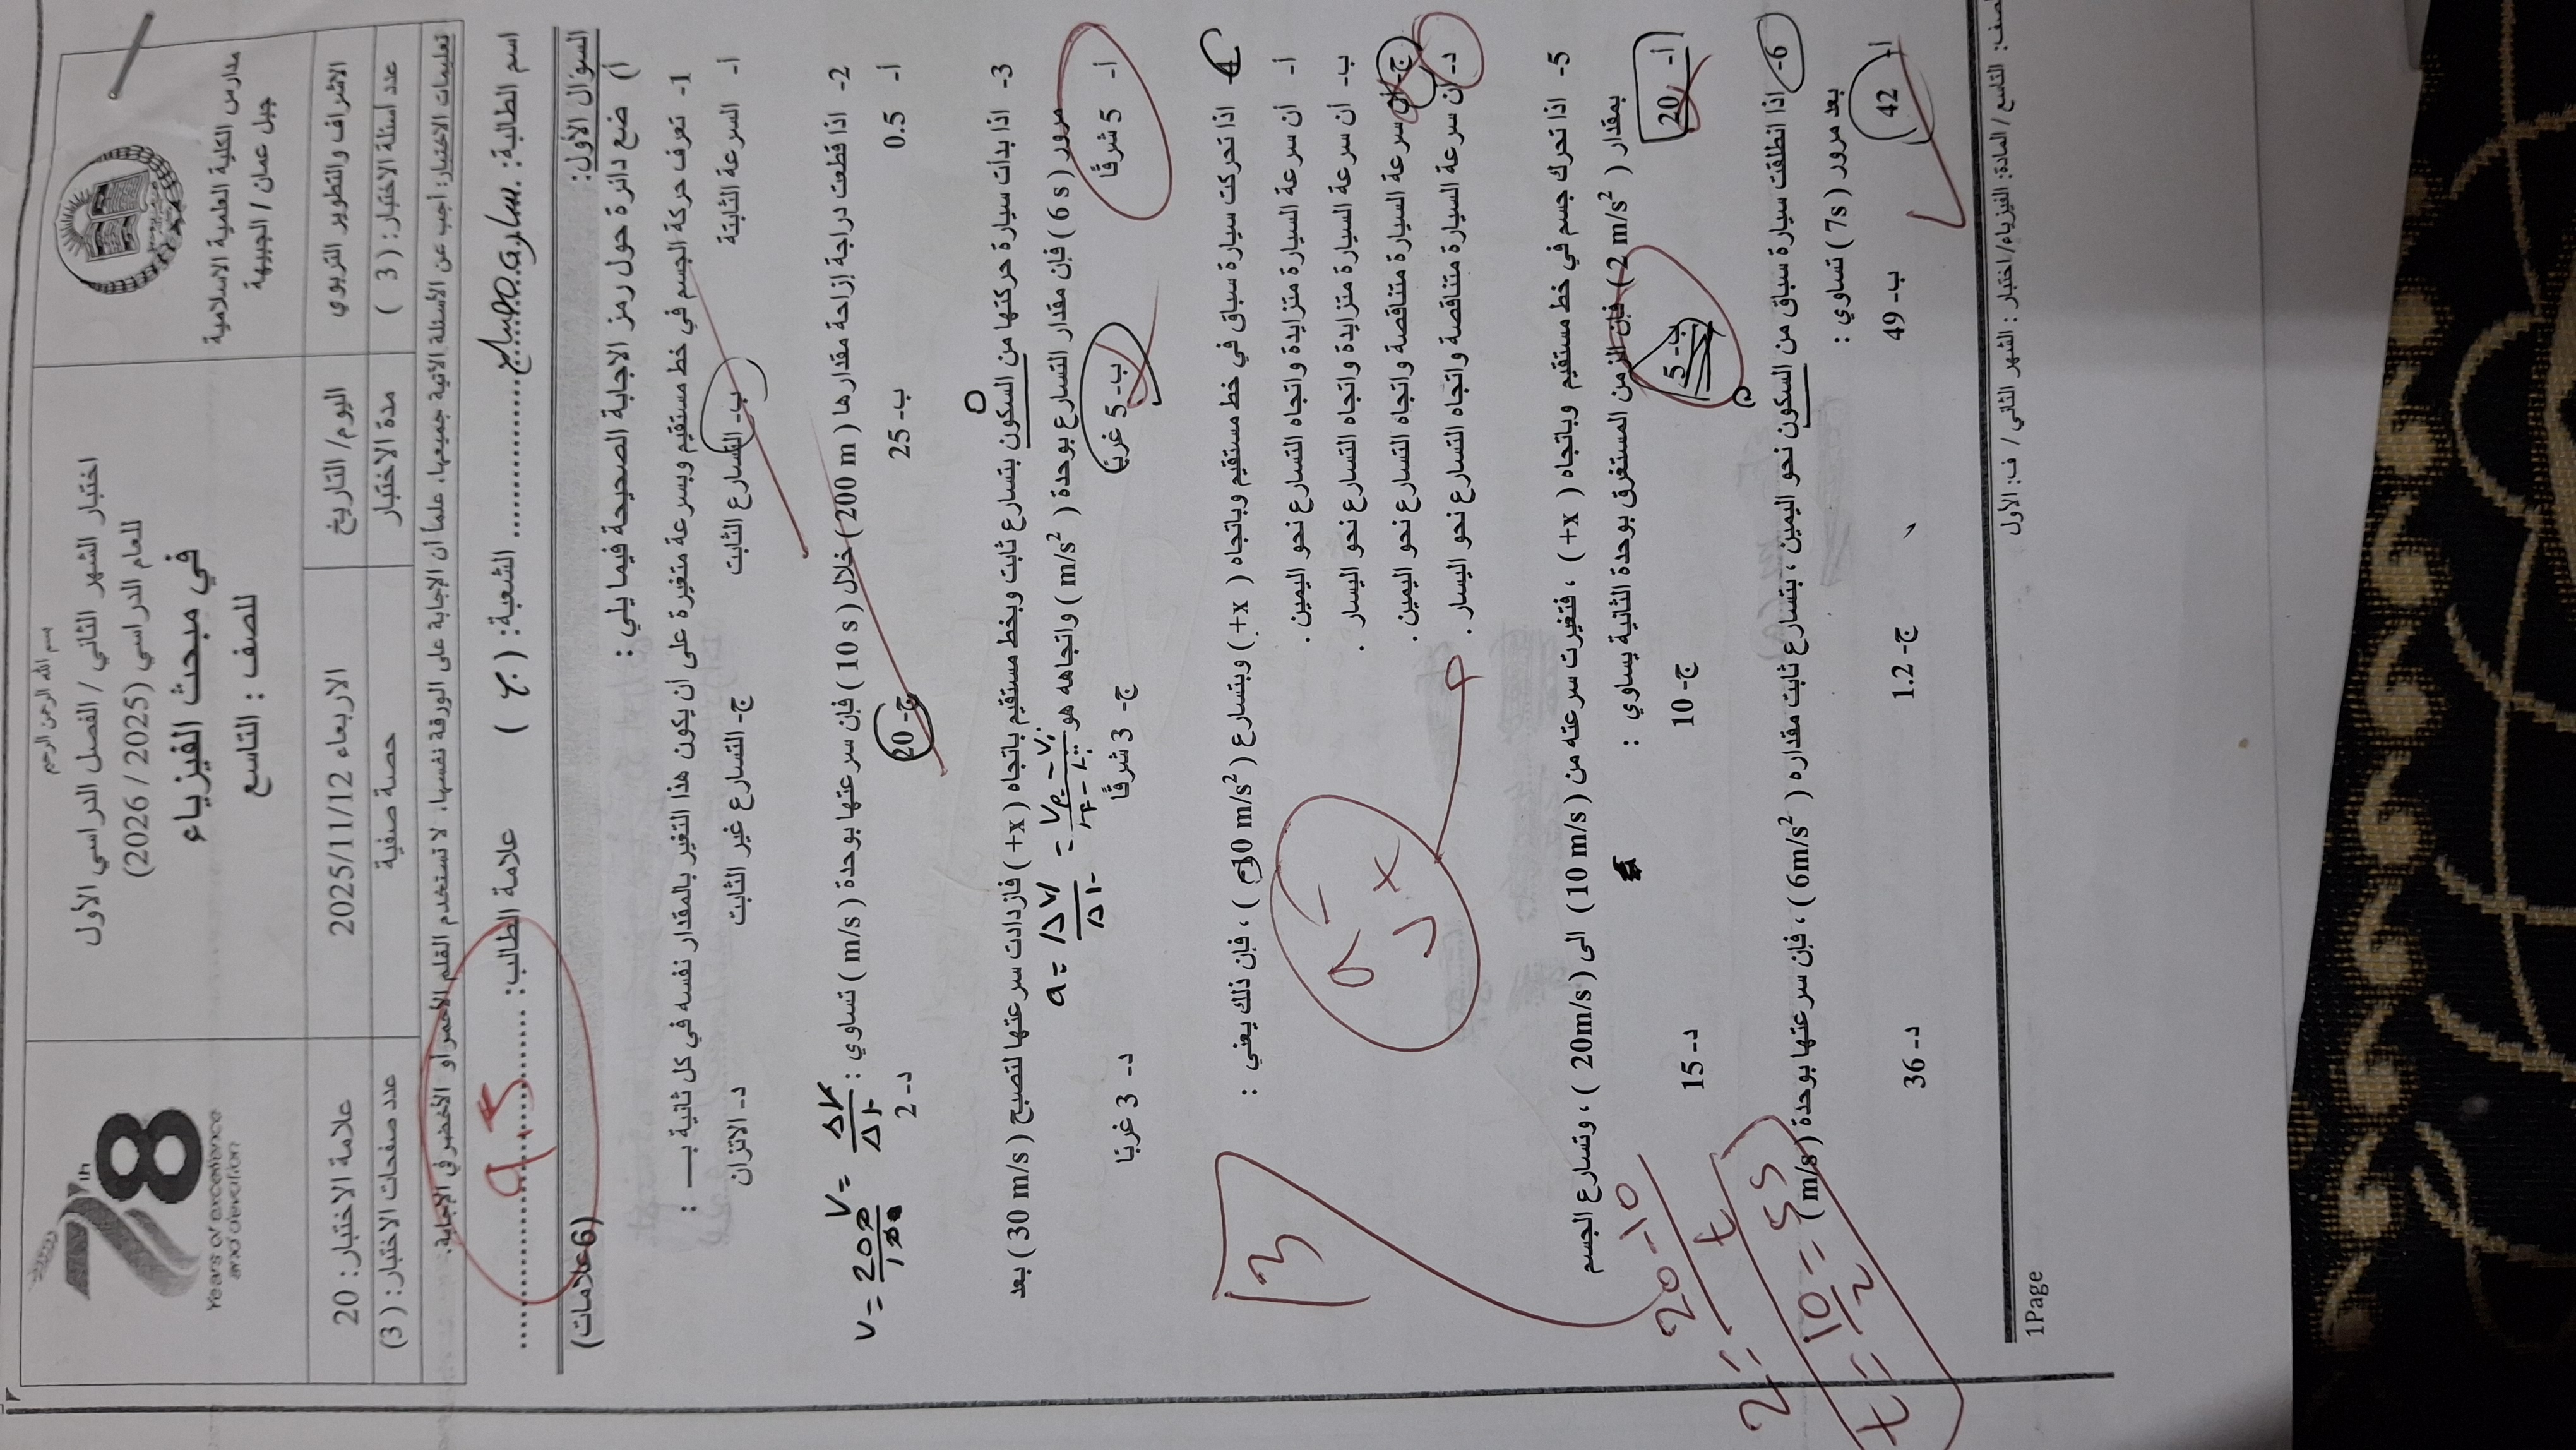 بسم الله الرحمن الرحيم
مدارس الكلية العلمية الاسلامية
جبل عمان / الجبيهة
اختبار الشهر الثاني / الفصل الدراسي الأول
للعام الدراسي (2025 / 2026)
في مبحث الفيزياء
للصف : التاسع
78th
Years of excellence
and devotion
الاشراف والتطوير التربوي
اليوم/ التاريخ
الاربعاء 2025/11/12
علامة الاختبار: 20
عدد أسئلة الاختبار: ( 3 )
مدة الاختبار
حصة صفية
عدد صفحات الاختبار: (3)
تعليمات الاختبار: أجب عن الأسئلة الآتية جميعها، علماً أن الإجابة على الورقة نفسها، لا تستخدم القلم الأحمر أو الأخضر في الإجابة.
اسم الطالبة: الشعبة: ( ج ) علامة الطالب: 9.5
السؤال الأول: (6علامات)
أ) ضع دائرة حول رمز الاجابة الصحيحة فيما يلي :
1- تعرف حركة الجسم في خط مستقيم وبسرعة متغيرة على أن يكون هذا التغير بالمقدار نفسه في كل ثانية بـ :
أ- السرعة الثابتة ب- التسارع الثابت ج- التسارع غير الثابت د- الاتزان
2- اذا قطعت دراجة إزاحة مقدارها ( 200 m) خلال ( 10 s ) فإن سرعتها بوحدة ( m/s ) تساوي :
أ- 0.5 ب- 25 ج- 20 د- 2
V = ΔX/Δt
V = 200/10
3- اذا بدأت سيارة حركتها من السكون بتسارع ثابت وبخط مستقيم باتجاه ( +x ) فازدادت سرعتها لتصبح ( 30 m/s ) بعد
0
مرور ( 6 s ) فإن مقدار التسارع بوحدة ( m/s² ) واتجاهه هو :
a = ΔV/Δt = Vf - Vi / tf - ti
أ- 5 شرقًا ب- 5 غربًا ج- 3 شرقًا د- 3 غربًا
4- اذا تحركت سيارة سباق في خط مستقيم وباتجاه ( +x ) وبتسارع ( -10 m/s² ) ، فإن ذلك يعني :
أ- أن سرعة السيارة متزايدة واتجاه التسارع نحو اليمين .
ب- أن سرعة السيارة متزايدة واتجاه التسارع نحو اليسار .
ج- أن سرعة السيارة متناقصة واتجاه التسارع نحو اليمين .
د- أن سرعة السيارة متناقصة واتجاه التسارع نحو اليسار .
3
5- اذا تحرك جسم في خط مستقيم وباتجاه ( +x ) ، فتغيرت سرعته من ( 10 m/s ) الى ( 20m/s ) ، وتسارع الجسم
بمقدار ( 2 m/s² ) فإن الزمن المستغرق بوحدة الثانية يساوي :
أ- 20 ب- 5 ج- 10 د- 15
2 = 20 - 10 / t
t = 10/2 = 5s
6- اذا انطلقت سيارة سباق من السكون نحو اليمين ، بتسارع ثابت مقداره ( 6m/s² ) ، فإن سرعتها بوحدة ( m/s )
بعد مرور ( 7s ) تساوي :
أ- 42 ب- 49 ج- 1.2 د- 36
الصف: التاسع / المادة: الفيزياء/ اختبار : الشهر الثاني / ف: الأول
1Page